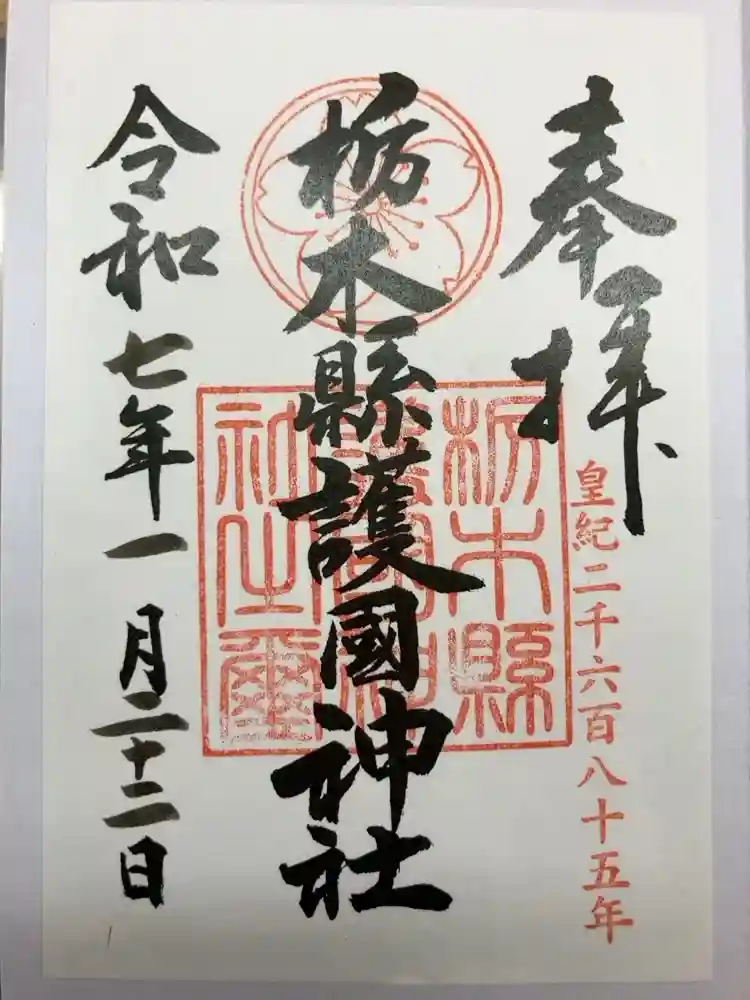 奉拝
皇紀二千六百八十五年
栃木縣護國神社
栃木縣
護國神
社之璽
令和七年一月二十二日